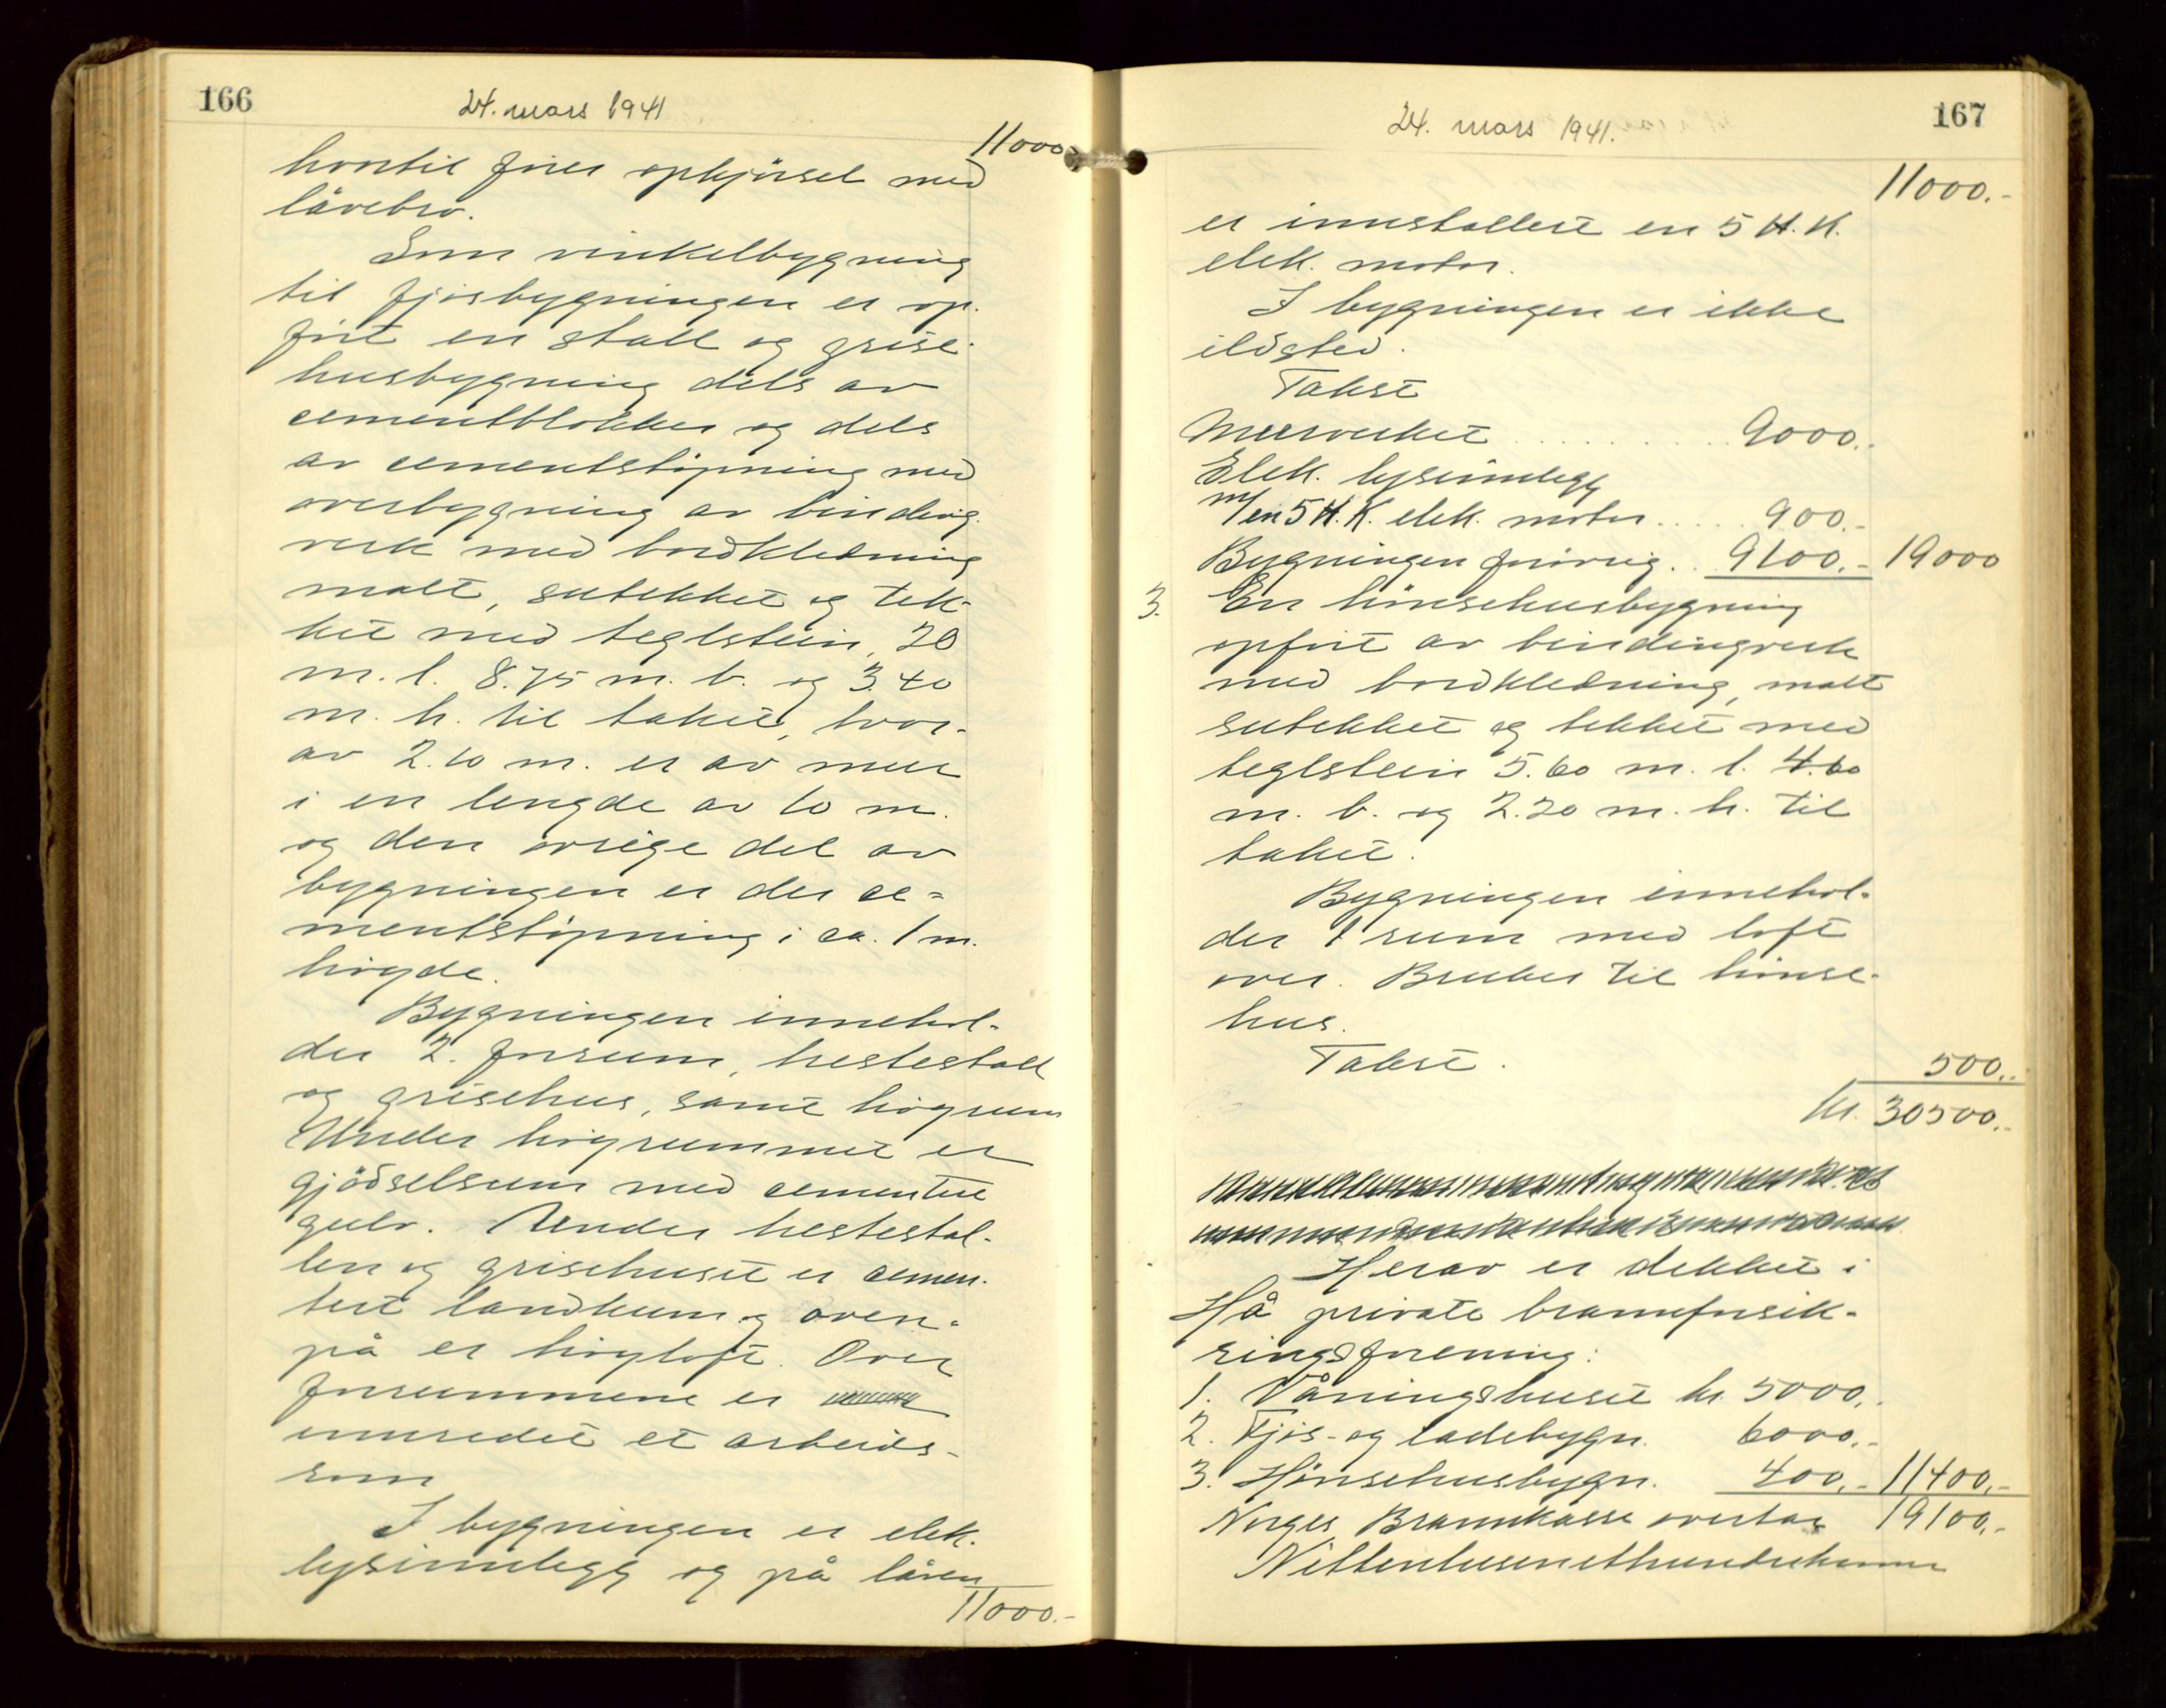 166
24. mars 1941
11000
hvortil fører opkjörsel med
låvebro.
Som vinkelbygning
til fjösbygningen er op-
fört en stall og grise-
husbygning dels av
cementblokker og dels
av cementstöpning med
overbygning av binding-
verk med bordkledning
malt, sutekket og tek-
ket med teglstein, 20
m. l. 8.75 m. b. og 3.40
m. h. til taket, hvor-
av 2.10 m. er av mur
i en lengde av 10 m.
og den övrige del av
bygningen er der ce-
mentstöpning i ca. 1 m.
höyde.
Bygningen innehol-
der 2. forrum, hestestall
og grisehus, samt höyrum
Under höyrummet er
gjödselrum med cementert
gulv. Under hestestal-
len og grisehuset er cemen-
tert landkum og oven-
på er höyloft. Over
forrummene er
innredet et arbeids-
rom
I bygningen er elek.
lysinnlegg og på låven
11000.-
167
24. mars 1941.
11000.-
er innstallert en 5 H.K.
elek. motor.
I bygningen er ikke
ildsted.
Takst
Murverket . . . . . . . . . 9000.-
Elek. lysinnlegg
m/en 5 H.K. elek. motor . . . . 900.-
Bygningen forövrig . . 9100.- 19000
3. En hönsehusbygning
opfört av bindingverk
med bordkledning, malt
sutekket og tekket med
teglstein 5.60 m. l. 4.60
m. b. og 2.20 m. h. til
taket.
Bygningen innehol-
der 1 rum med loft
over. Brukes til hönse-
hus.
Takst.
500.-
kr. 30500.-
Herav er dekket i
Hå private brannforsik-
ringsforening:
1. Våningshuset kr. 5000.-
2. Fjös- og ladebygn. 6000.-
3. Hönsehusbygn. 400.- 11400.-
Norges Brannkasse overtar 19100.-
Nittentusenethundrekroner